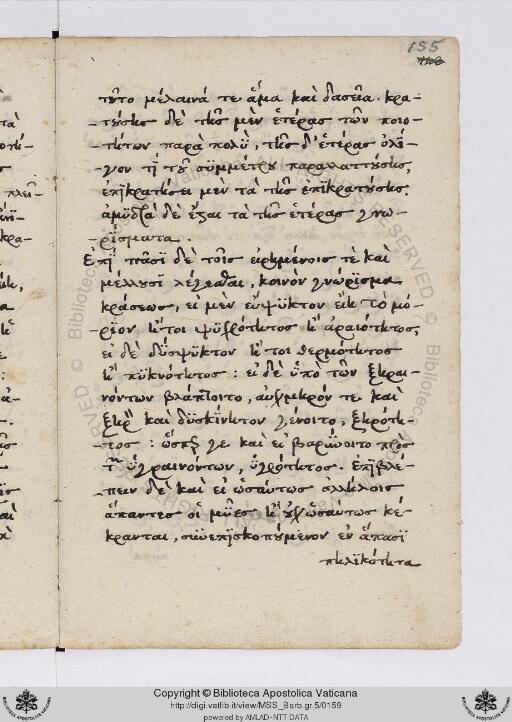 155
τοῦτο μέλαινά τε ἅμα καὶ δασεῖα. κρα-
-τούσης δὲ τῆς μὲν ἑτέρας τῶν ποιο-
-τήτων παρὰ πολὺ, τῆς δ' ἑτέρας ὀλί-
-γον τι τοῦ συμμέτρου παραλαττούσης,
ἐπικρατήσει μὲν τὰ τῆς ἐπικρατούσης.
ἀμυδρὰ δὲ ἔξει τὰ τῆς ἑτέρας γνω-
-ρίσματα
Ἐπὶ πᾶσι δὲ τοῖς εἰρημένοις τὲ καὶ
μέλλουσι λέγεσθαι, κοινὸν γνώρισμα
κράσεως, εἰ μὲν εὔψυκτον εἴη τὸ μό-
-ριον ἤτοι ψυχρότητος ἢ ἀραιότητος,
εἰ δὲ δύσψυκτον ἤτοι θερμότητος
ἢ πυκνότητος: εἰ δὲ ὑπὸ τῶν ξηραι-
νόντων βλάπτοιτο, αὐχμηρόν τε καὶ
ξηρὸν καὶ δυσκίνητον γένοιτο, ξηρότη-
-τος: ὥσπερ γε καὶ εἰ βαρύνοιτο πρὸς
τῶν ὑγραινόντων, ὑγρότητος. ἐπιβλέ-
-πειν δὲ καὶ εἰ ὡσαύτως ἀλλήλοις
ἅπαντες οἱ μύες ἢ οὐχ ὡσαύτως κέ-
κρανται, συνεπισκοπούμενον ἐν ἅπασι
πηλικότητα
Copyright © Biblioteca Apostolica Vaticana
http://digi.vatlib.it/view/MSS_Barb.gr.5/0159
powered by AMLAD-NTT DATA